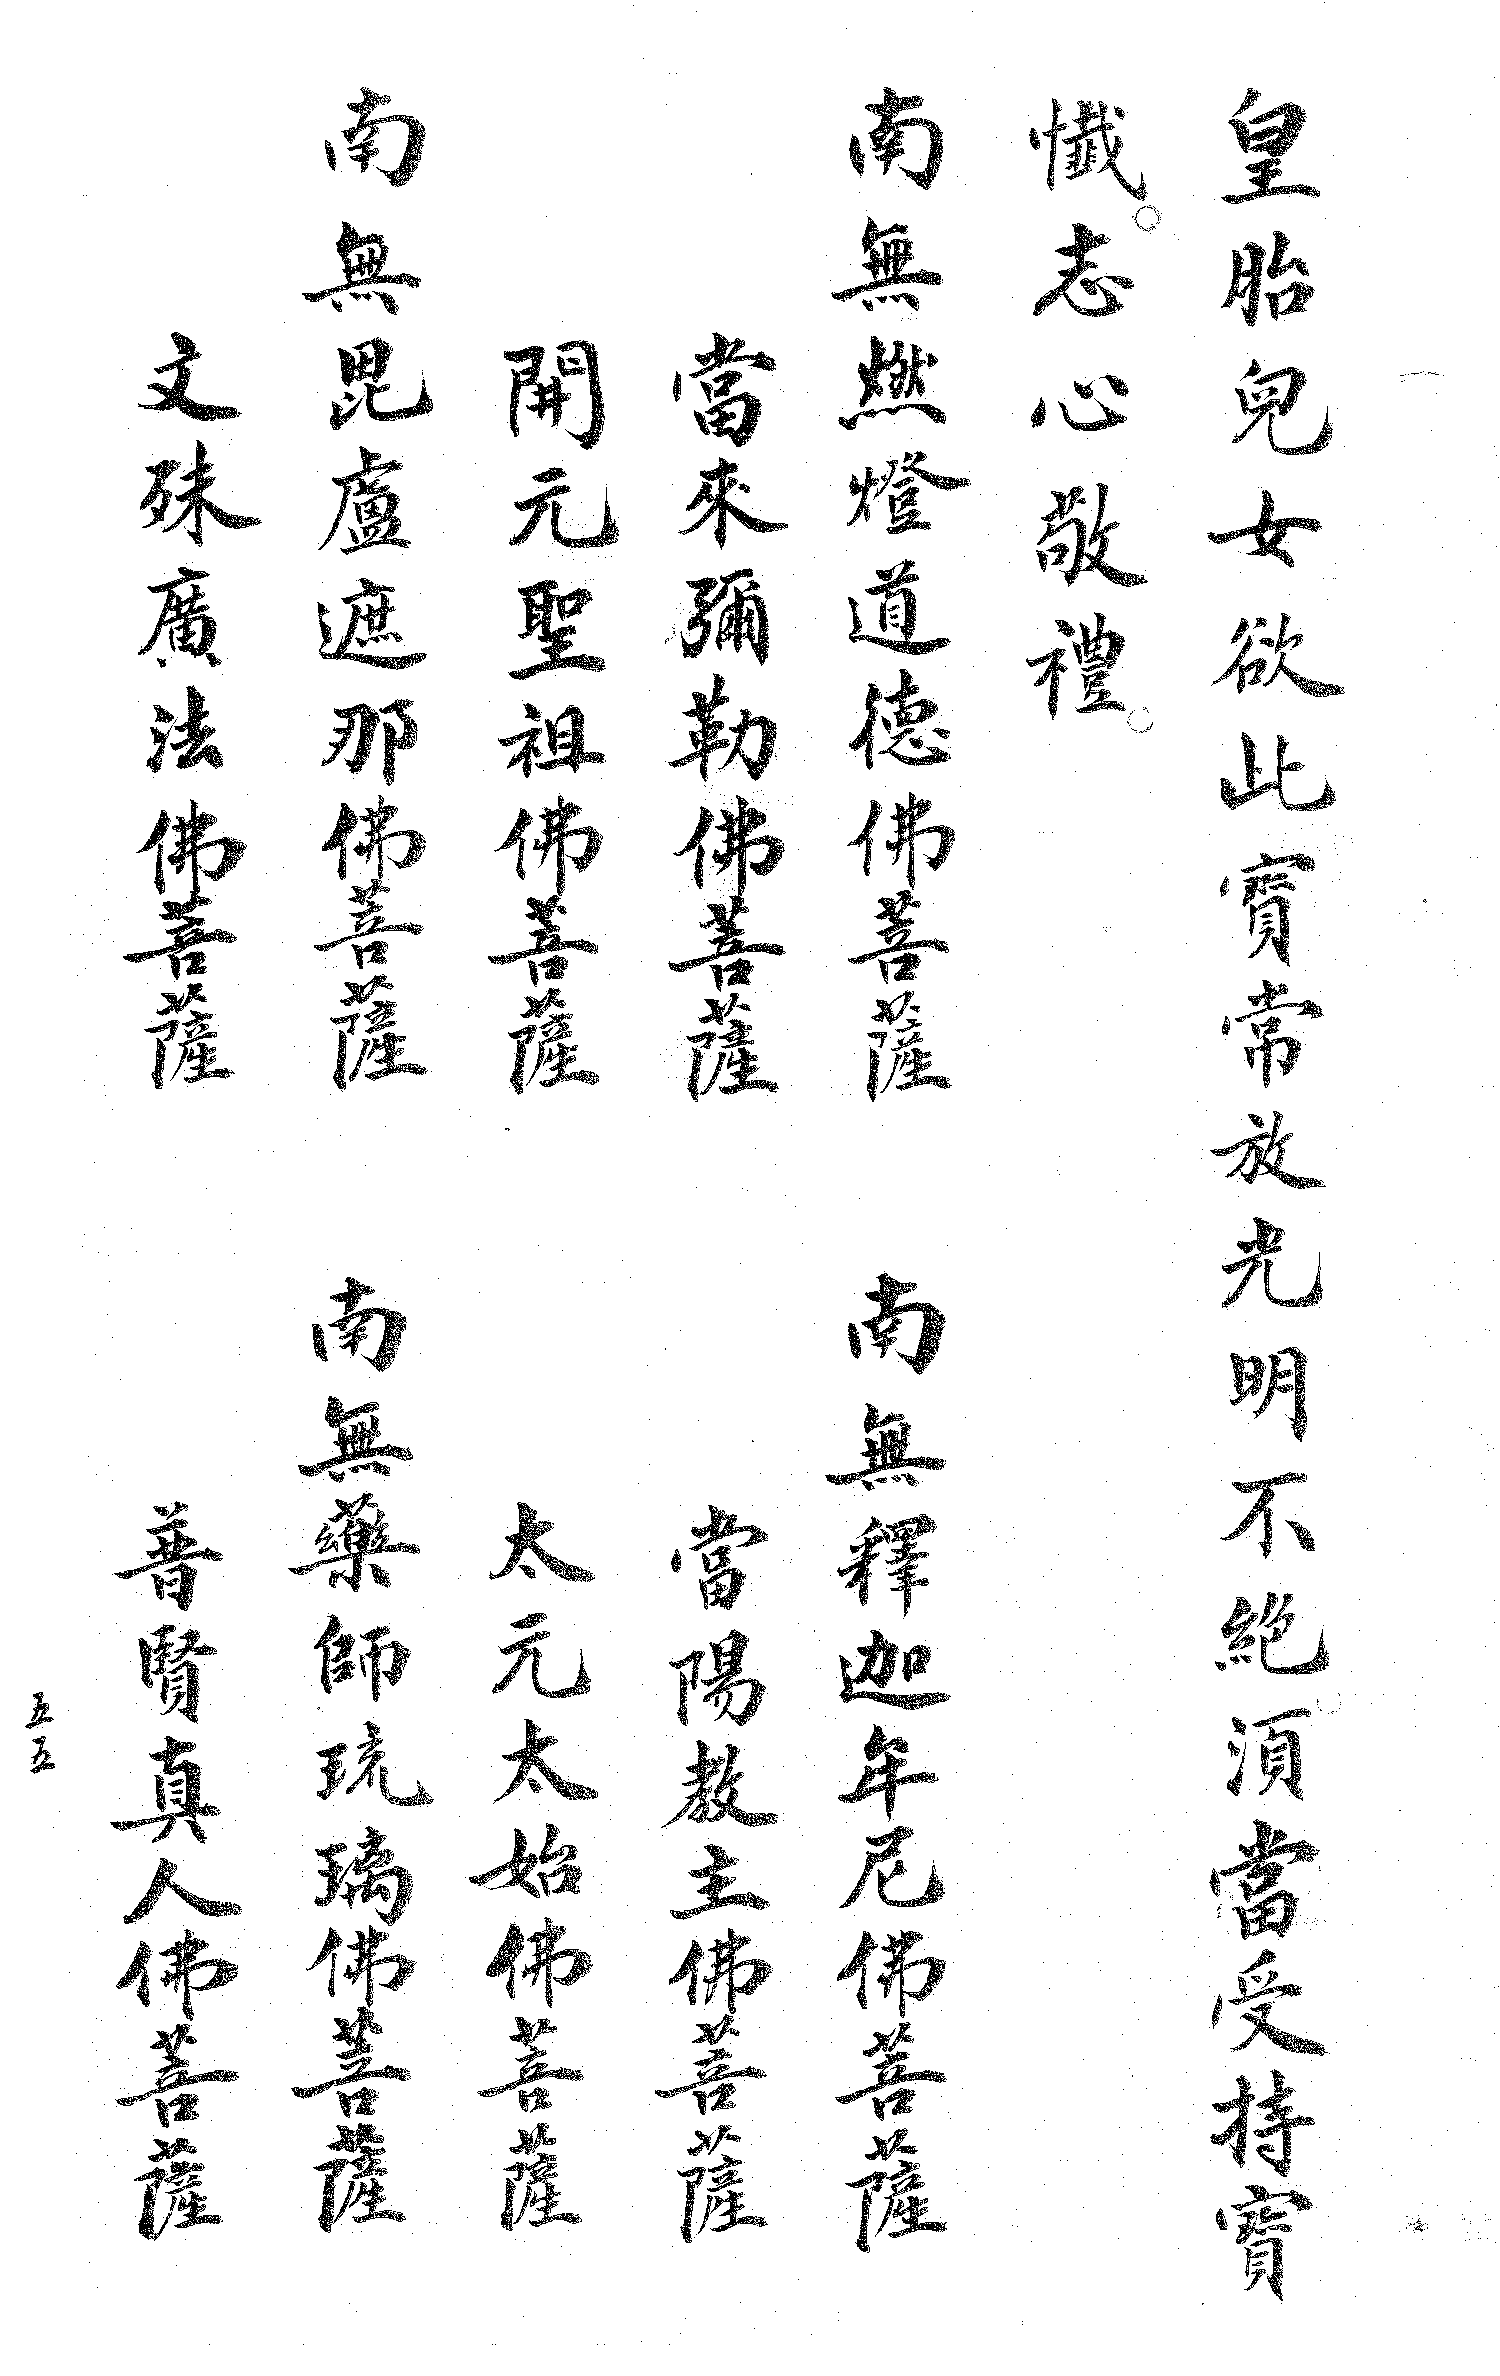 皇胎兒女欲此寳常放光明不絕須當受持寳
懺。志心敬禮。
南無燃燈道德佛菩薩　南無釋迦年尼佛菩薩
當來彌勒佛菩薩　當陽教主佛菩薩
開元聖祖佛菩薩　太元太始佛菩薩
南無毘盧遮那佛菩薩　南無藥師琉璃佛菩薩
文殊廣法佛菩薩　普賢真人佛菩薩
五五